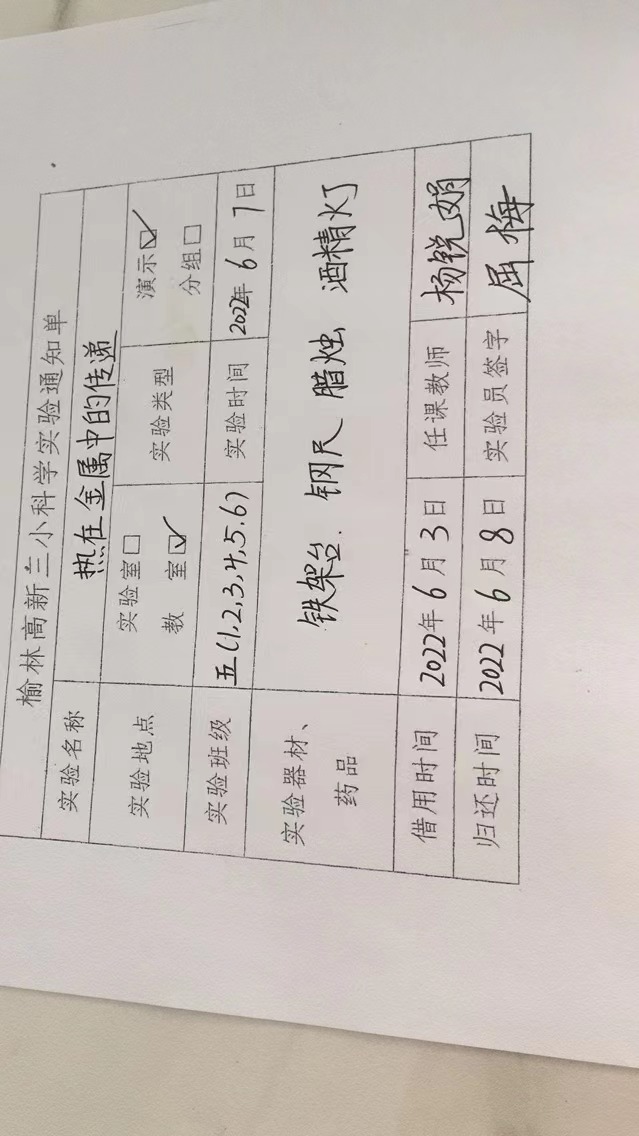 榆林高新三小科学实验通知单
实验名称 热在金属中的传递
实验地点 实验室□ 教 室☑ 实验类型 演示☑ 分组□
实验班级 五(1.2.3.4.5.6) 实验时间 2022年6月7日
实验器材、药品 铁架台.钢尺 腊烛 酒精灯
借用时间 2022年6月3日 任课教师 杨锐娟
归还时间 2022年6月8日 实验员签字 屈梅